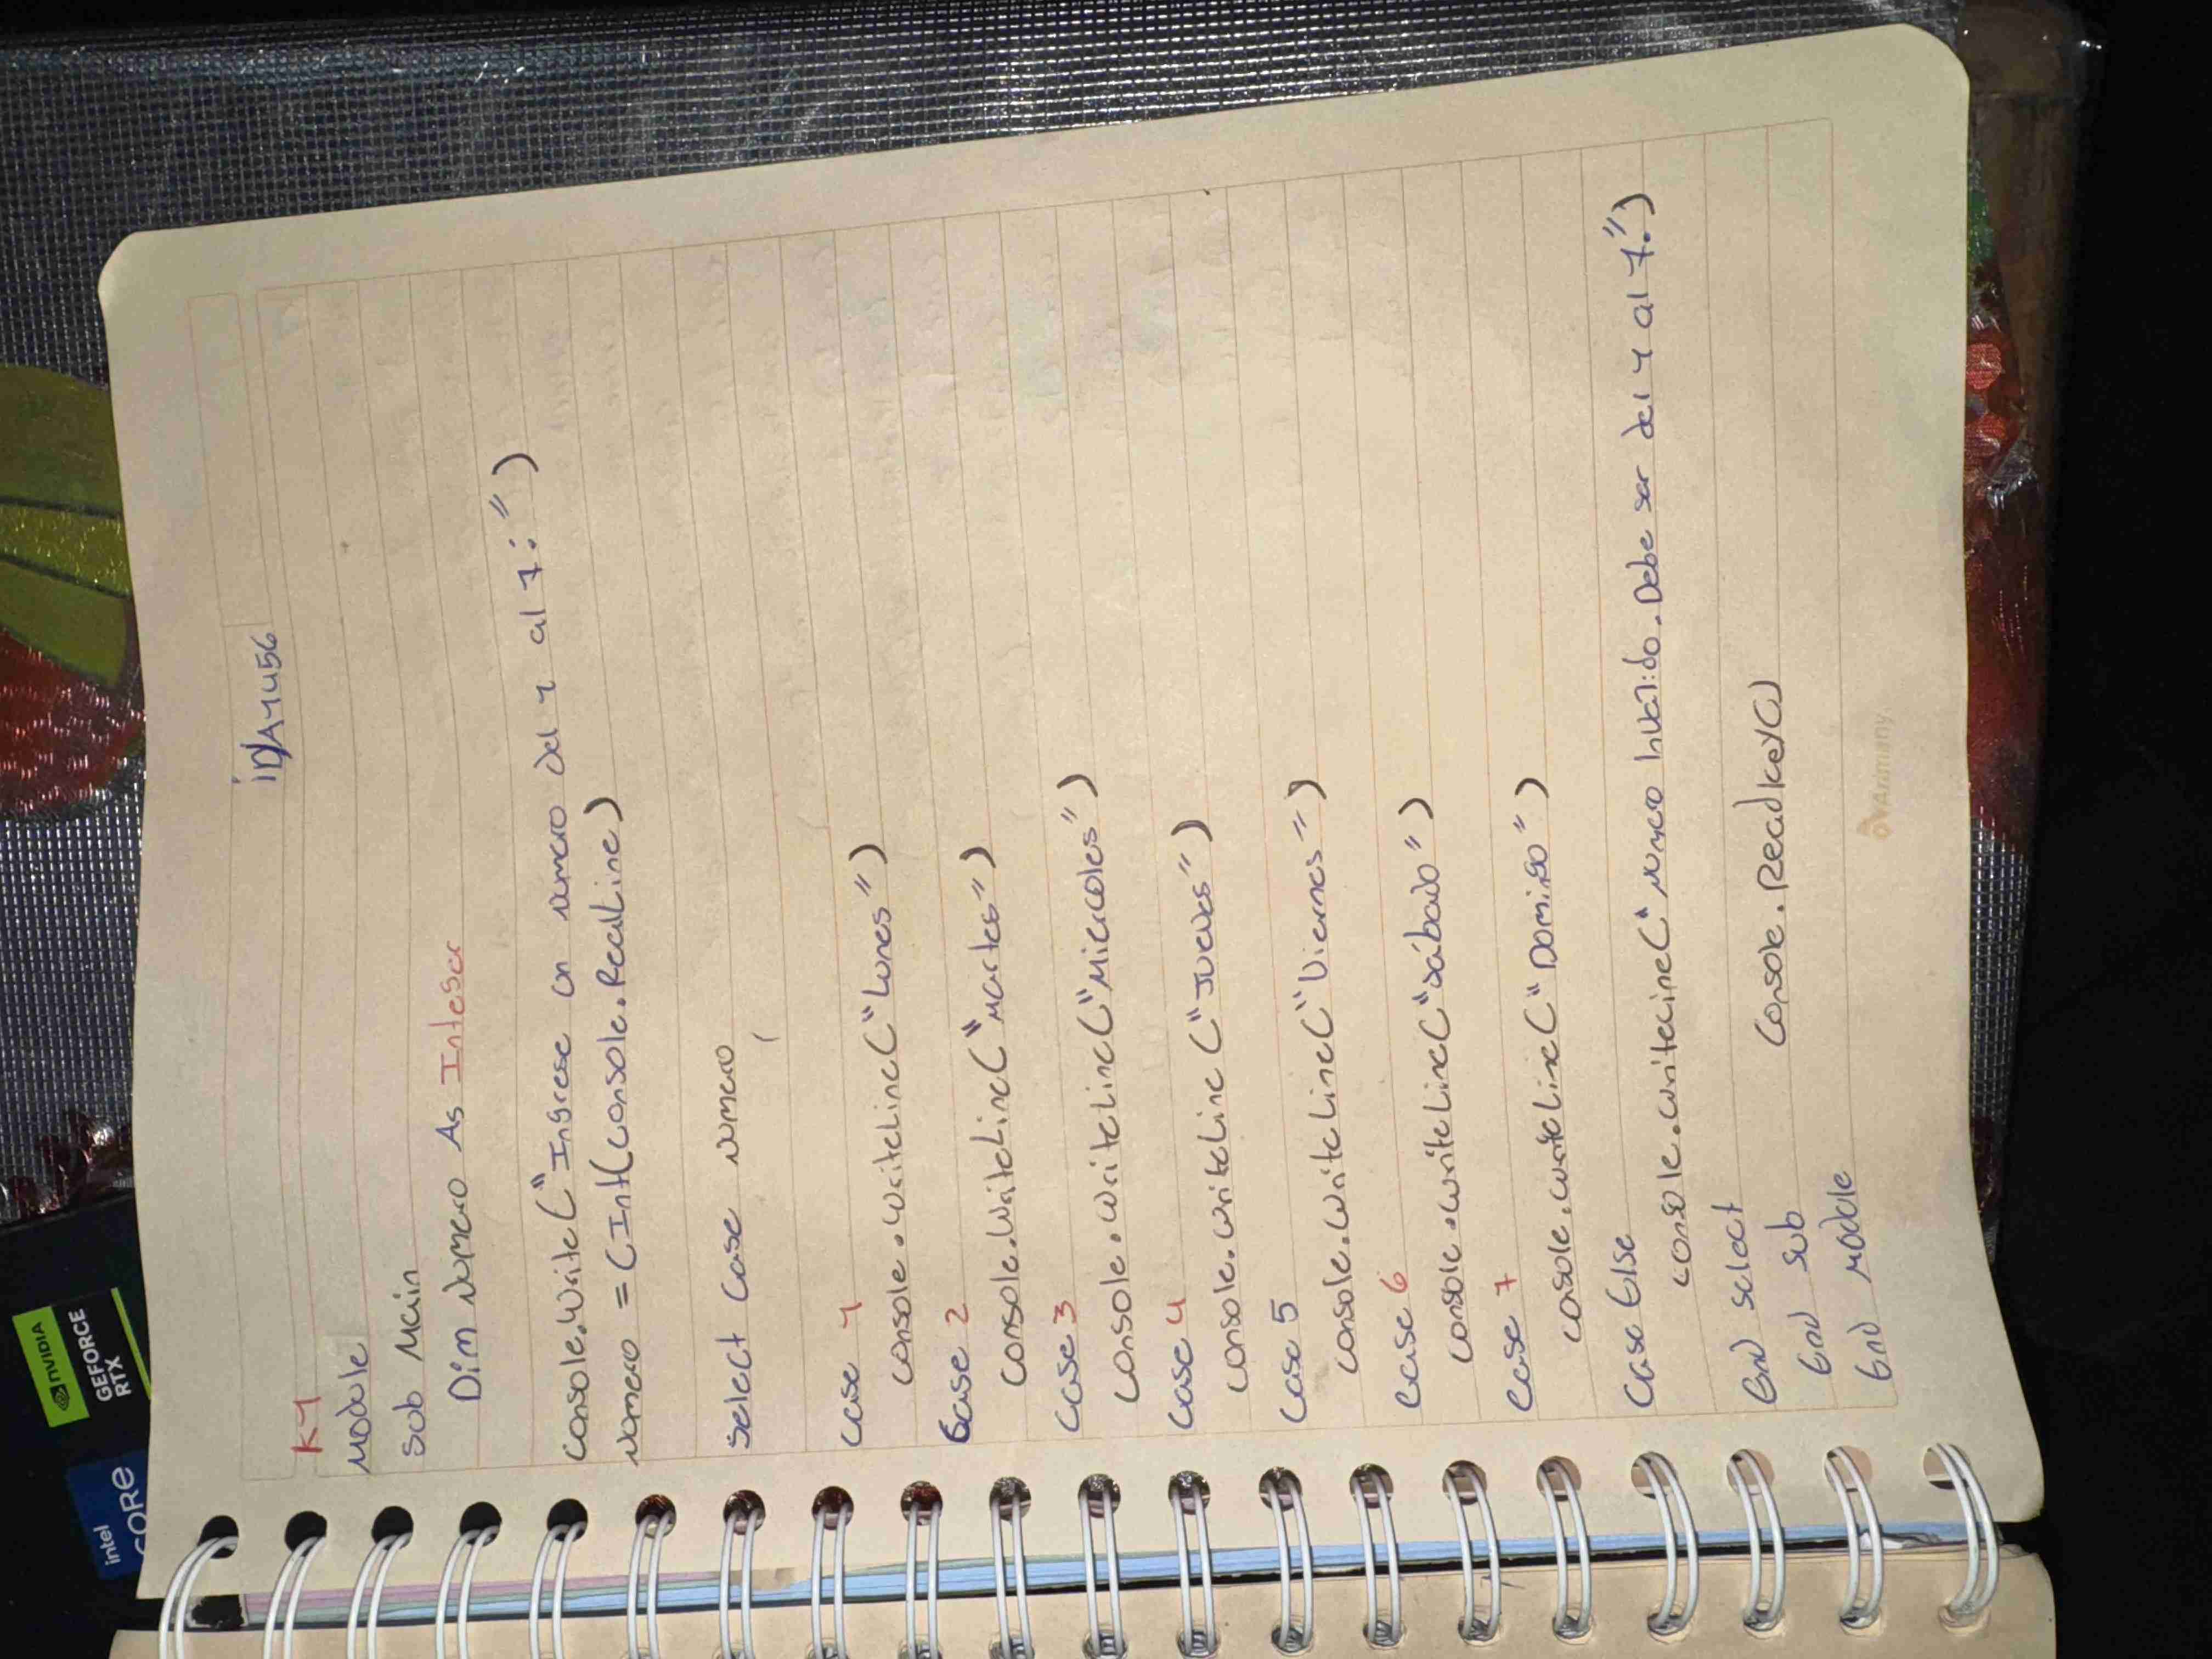 iD/A1456
K1
Module
Sub Main
Dim Numero As Integer
Console.Write("Ingrese un numero del 1 al 7:")
Numero = CInt(Console.ReadLine)
Select Case Numero
Case 1
Console.WriteLine("Lunes")
Case 2
Console.WriteLine("Martes")
Case 3
Console.WriteLine("Miercoles")
Case 4
Console.WriteLine("Jueves")
Case 5
Console.WriteLine("Viernes")
Case 6
Console.WriteLine("Sábado")
Case 7
Console.WriteLine("Domingo")
Case Else
Console.WriteLine("Numero Invalido. Debe ser del 1 al 7.")
End Select
Console.ReadKey()
End Sub
End Module
intel
CORE
NVIDIA
GEFORCE
RTX